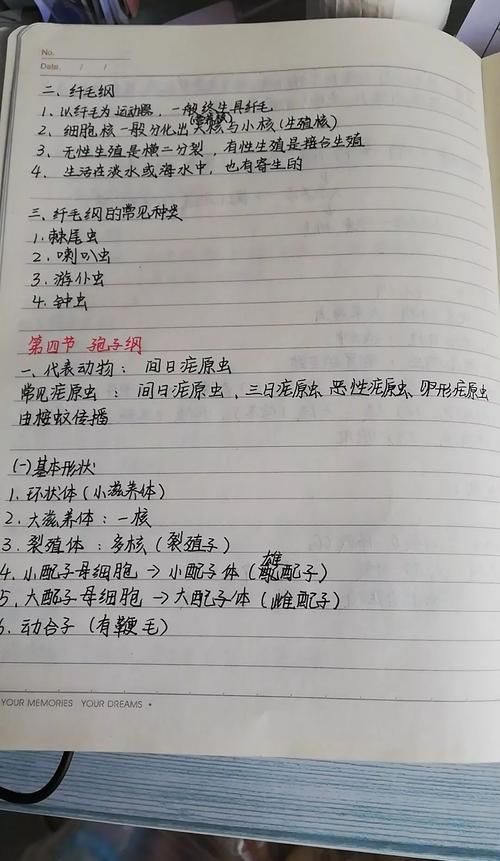 No.
Date. / /
二、纤毛纲
1、以纤毛为运动器，一般终生具纤毛
2、细胞核一般分化出大核(营养核)与小核(生殖核)
3、无性生殖是横二分裂，有性生殖是接合生殖
4、生活在淡水或海水中，也有寄生的
三、纤毛纲目的常见种类
1.棘尾虫
2.喇叭虫
3.游仆虫
4.钟虫
第四节 孢子纲
一、代表动物：间日疟原虫
常见疟原虫：间日疟原虫、三日疟原虫、恶性疟原虫、卵形疟原虫
由按蚊传播
(一)基本形状
1.环状体(小滋养体)
2.大滋养体：一核
3.裂殖体：多核(裂殖子)
4.小配子母细胞→小配子体(雄配子)
5.大配子母细胞→大配子体(雌配子)
6.动合子(有鞭毛)
YOUR MEMORIES YOUR DREAMS •